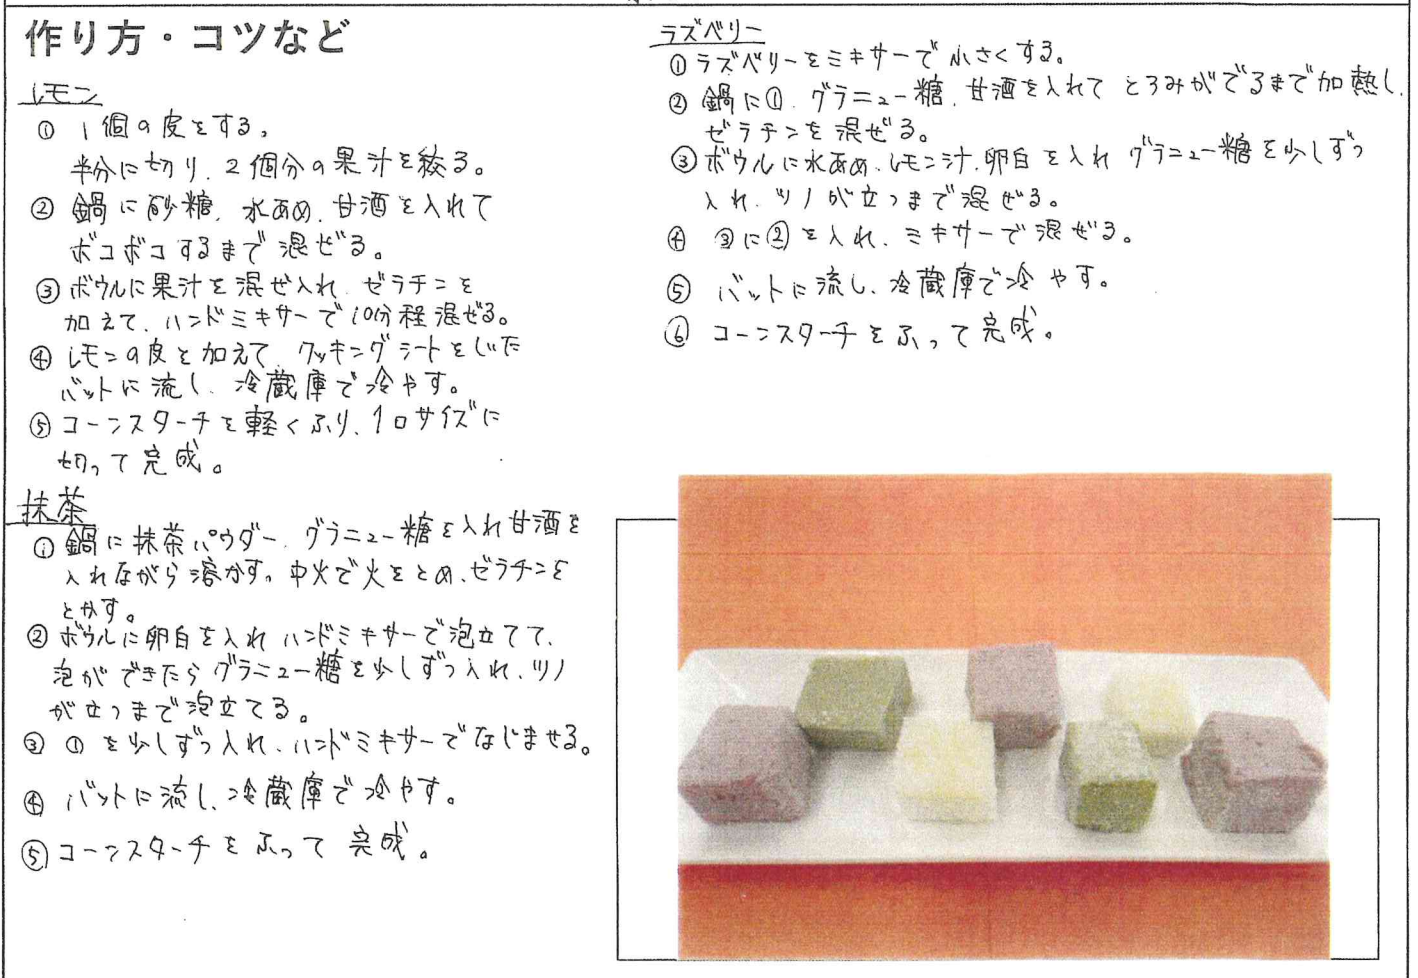 作り方・コツなど
レモン
① 1個の皮をする。
半分に切り、2個分の果汁を絞る。
② 鍋に砂糖、水あめ、甘酒を入れて
ボコボコするまで混ぜる。
③ ボウルに果汁を混ぜ入れ、ゼラチンを
加えて、ハンドミキサーで10分程混ぜる。
④ レモンの皮を加えて、クッキングシートをしいた
バットに流し、冷蔵庫で冷やす。
⑤ コーンスターチを軽くふり、1口サイズに
切って完成。
抹茶
① 鍋に抹茶パウダー、グラニュー糖を入れ甘酒を
入れながら溶かす。中火で火をとめ、ゼラチンを
とかす。
② ボウルに卵白を入れハンドミキサーで泡立てて、
泡ができたらグラニュー糖を少しずつ入れ、ツノ
が立つまで泡立てる。
③ ①を少しずつ入れ、ハンドミキサーでなじませる。
④ バットに流し、冷蔵庫で冷やす。
⑤ コーンスターチをふって完成。
ラズベリー
① ラズベリーをミキサーで小さくする。
② 鍋に①、グラニュー糖、甘酒を入れてとろみがでるまで加熱し、
ゼラチンを混ぜる。
③ ボウルに水あめ、レモン汁、卵白を入れグラニュー糖を少しずつ
入れ、ツノが立つまで混ぜる。
④ ③に②を入れ、ミキサーで混ぜる。
⑤ バットに流し、冷蔵庫で冷やす。
⑥ コーンスターチをふって完成。